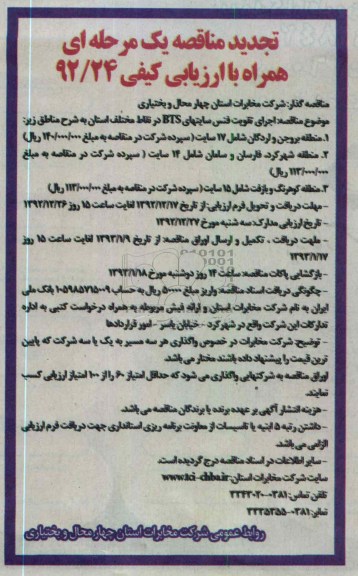 تجدید مناقصه یک مرحله ای
همراه با ارزیابی کیفی ۹۲/۲۴
مناقصه گذار: شرکت مخابرات استان چهار محال و بختیاری
موضوع مناقصه: اجرای تقویت فنس سایتهای BTS در نقاط مختلف استان به شرح مناطق زیر:
۱. منطقه بروجن و اردکان شامل ۱۷ سایت (سپرده شرکت در مناقصه به مبلغ ۱۴۰/۰۰۰/۰۰۰ ریال)
۲. منطقه شهرکرد، فارسان و سامان شامل ۱۴ سایت ( سپرده شرکت در مناقصه به مبلغ
۱۱۳/۰۰۰/۰۰۰ ریال)
۳. منطقه کوهرنگ و بازفت شامل ۱۵ سایت (سپرده شرکت در مناقصه به مبلغ ۱۱۳/۰۰۰/۰۰۰ ریال)
- مهلت دریافت و تحویل فرم ارزیابی: از تاریخ ۱۳۹۲/۱۲/۱۷ لغایت ساعت ۱۵ روز ۱۳۹۲/۱۲/۲۶
- تاریخ ارزیابی مدارک: سه شنبه مورخ ۱۳۹۲/۱۲/۲۷
- مهلت دریافت ، تکمیل و ارسال اوراق مناقصه: از تاریخ ۱۳۹۳/۱/۹ لغایت ساعت ۱۵ روز
۱۳۹۳/۱/۱۷
- بازگشایی پاکات مناقصه: ساعت ۱۴ روز دوشنبه مورخ ۱۳۹۳/۱/۱۸
- چگونگی دریافت اسناد مناقصه: واریز مبلغ ۵۰۰۰۰ ریال به حساب ۱۰۵۹۸۵۷۱۵۰۰۹ بانک ملی
ایران به نام شرکت مخابرات استان و ارائه فیش مربوطه به همراه درخواست کتبی به اداره
تدارکات این شرکت واقع در شهرکرد - خیابان یاسر - امور قراردادها
- توضیح: شرکت مخابرات در خصوص واگذاری هر سه مسیر به یک یا سه شرکت که پایین
ترین قیمت را پیشنهاد داده باشند مختار می باشد.
اوراق مناقصه به شرکتهایی واگذاری می شود که حداقل امتیاز ۶۰ را از ۱۰۰ امتیاز ارزیابی کسب
نمایند.
- هزینه انتشار آگهی بر عهده برنده یا برندگان مناقصه می باشد.
- داشتن رتبه ۵ ابنیه یا تاسیسات از معاونت برنامه ریزی استانداری جهت دریافت فرم ارزیابی
الزامی می باشد.
- سایر اطلاعات در اسناد مناقصه درج گردیده است.
سایت شرکت مخابرات استان: www.tci-chba.ir
تلفن تماس: ۰۳۸۱-۳۳۴۳۰۲۰
نمابر: ۰۳۸۱-۲۲۲۵۳۵۵
روابط عمومی شرکت مخابرات استان چهار محال و بختیاری